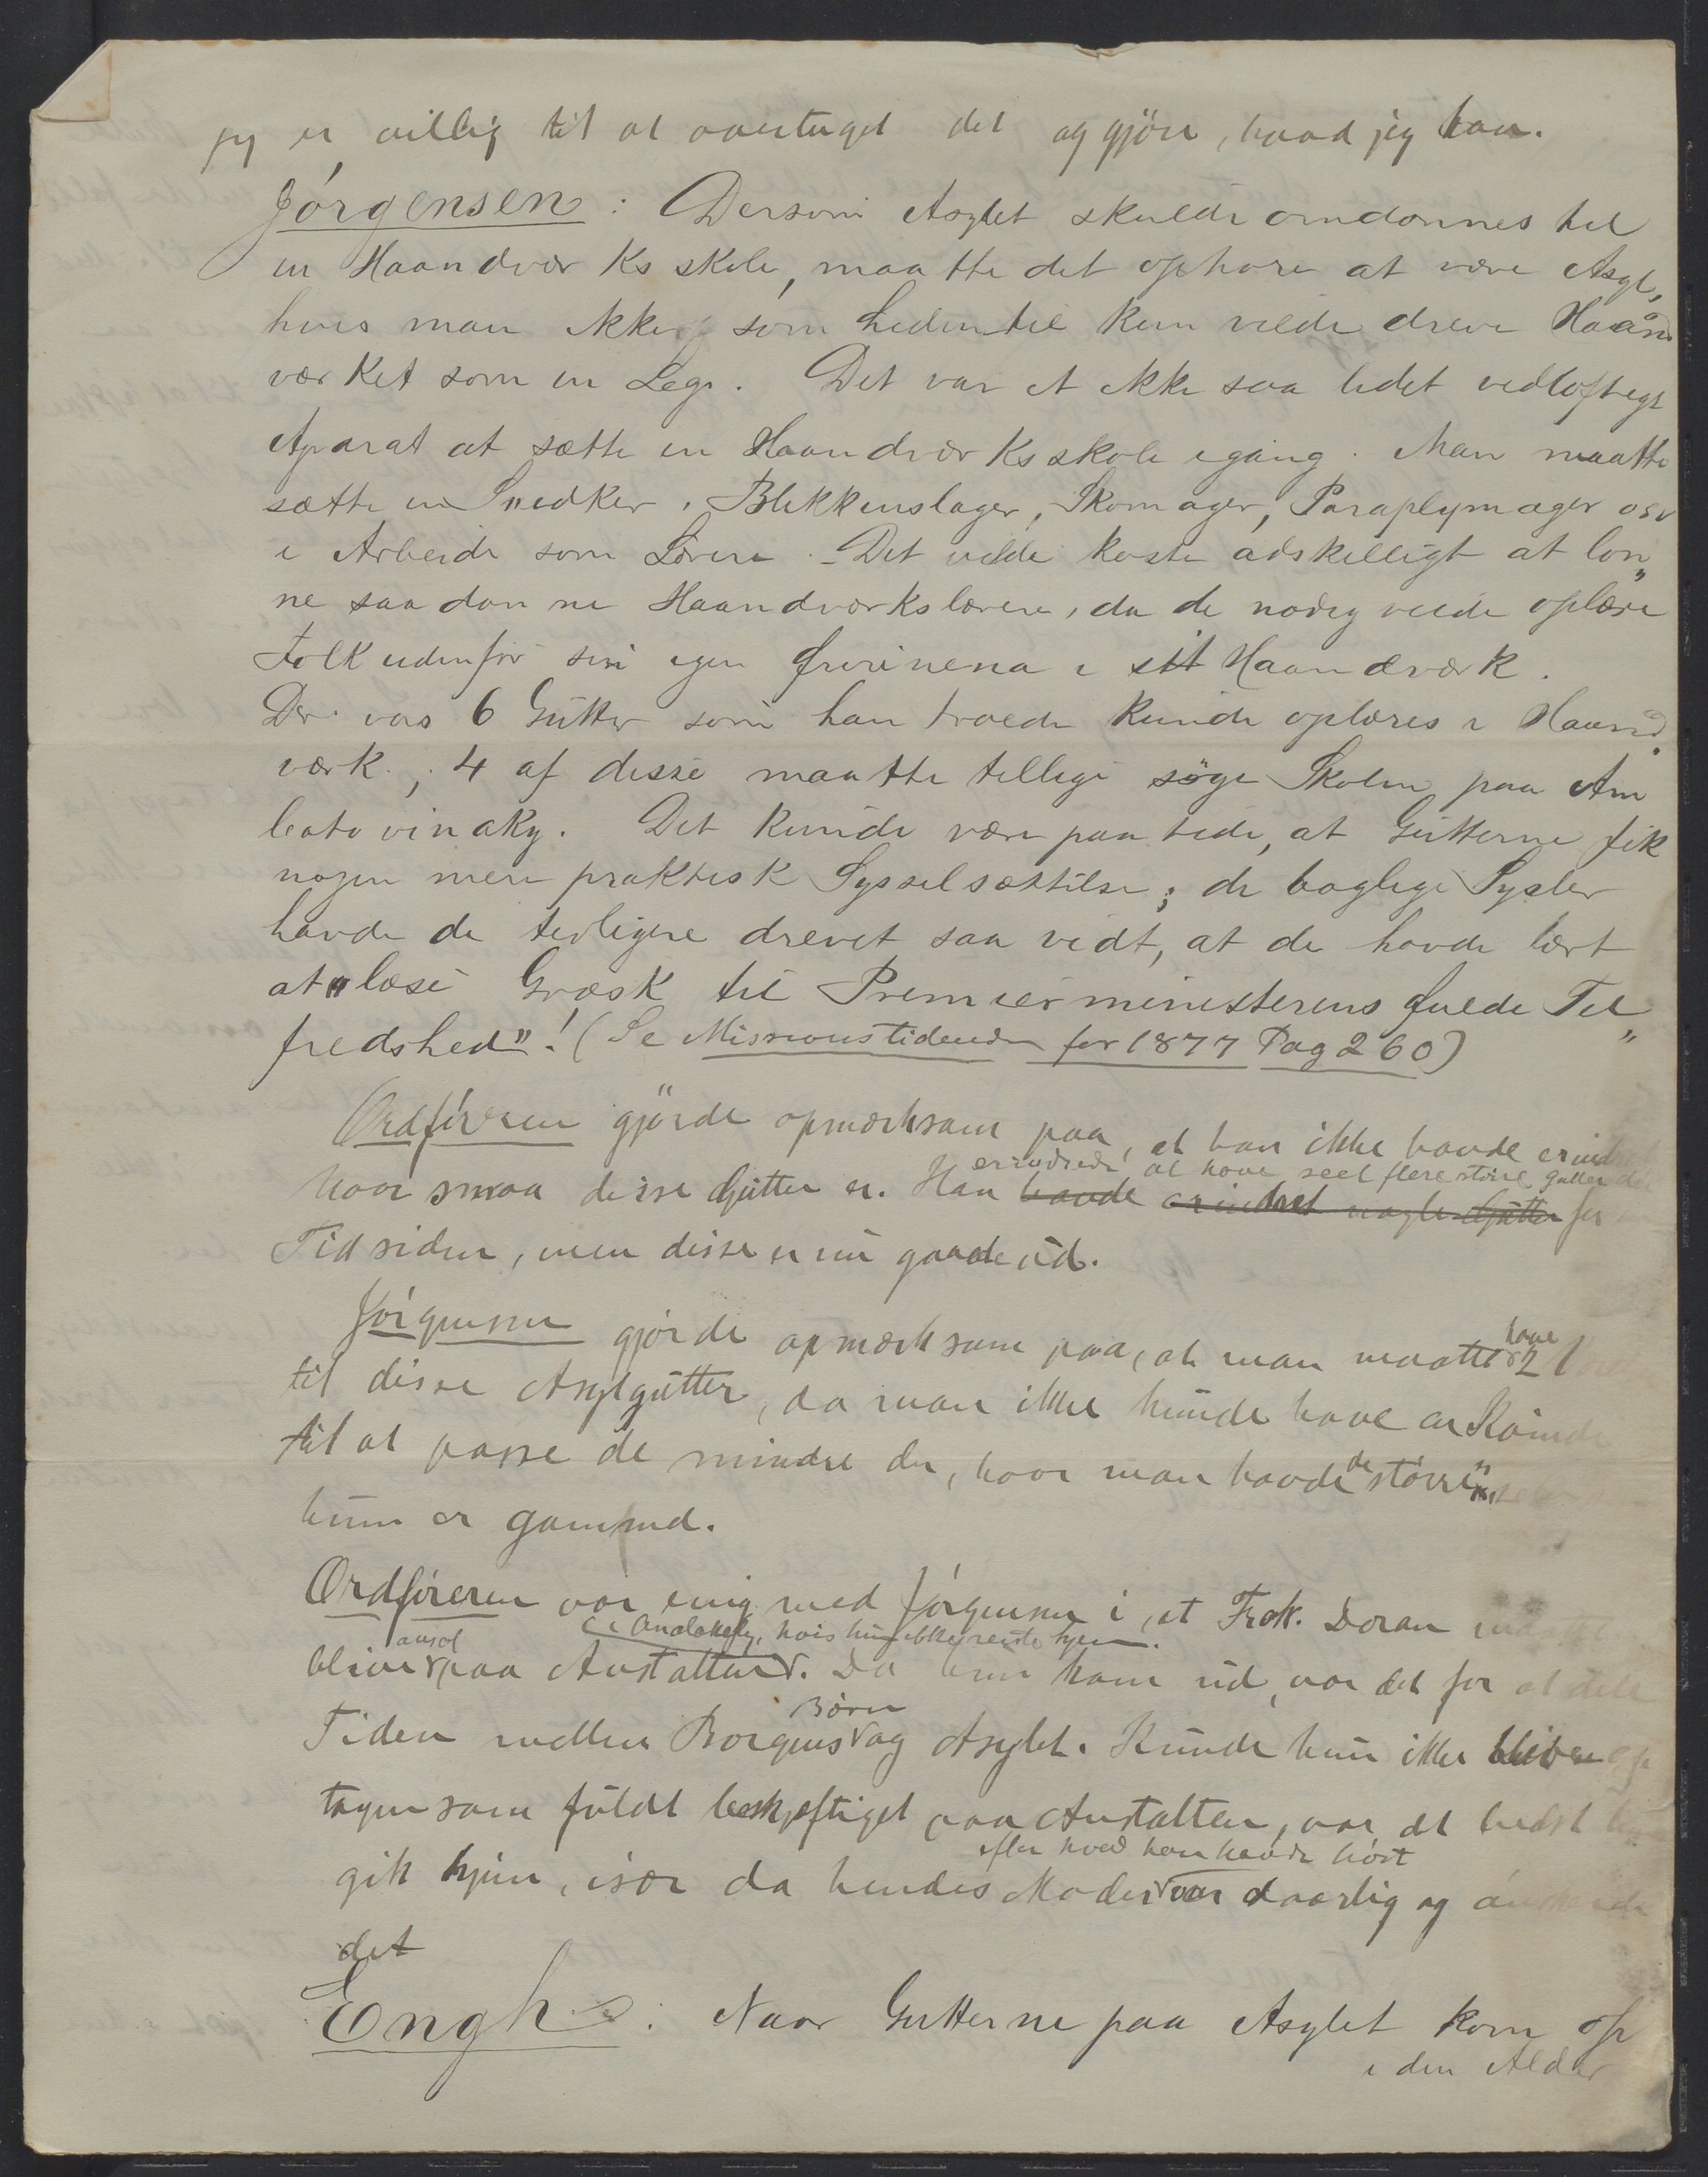 jeg er villig til at overtage det og gjöre, hvad jeg kan.
Jörgensen: Dersom Asylet skulde omdannes til
en Haandværksskole, maatte det ophøre at være Asyl,
hvis man ikke, som hidentil kun vilde dreve Haand
værket som en Leg. Det var et ikke saa lidet vidløftigt
Aparat at sætte en Haandværksskole igang. Man maatte
sætte en Snedker, Blikkenslager, Skomager, Paraplymager osv
i Arbeide som Lærere. Det vilde koste adskilligt at løn„
ne saadanne Haandværkslærere, da de nødig vilde oplære
Folk udenfor sin egen i sit Haandværk.
Der var 6 Gutter som han troede kunde oplæres i Haand
værk; 4 af disse maatte tillige söge Skolen paa Am
batovinaky. Det kunde være paa tide, at Gutterne fik
nogen mere praktisk Sysselsættelse; de boglige Sysler
havde de tidligere drevet saa vidt, at de havde lært
at „læse Græsk til Premierministerens fulde Til„
fredshed"! (Se Missionstidende for 1877 Pag 260)
Ordføreren gjörde opmærksom paa, at han ikke havde erindret
erindrede at have seet flere större gutter der
hvor smaa disse Gutter er. Han havde erindret nogle Gutter for
Tid siden, men disse er nu gaaede ud.
Jörgensen gjörde opmærksom paa, at man maatte have 2
til disse Asylgutter, da man ikke kunde have en Kvinde
til at passe de mindre der, hvor man havde de större,
hun er gammel.
Ordføreren var enig med Jörgensen i, at Frøk. Doran
ansat i Analakely, hvis hun ikke reiste hjem.
bliver paa Anstalten. Da hun kom ud, var det for at dele
Tiden mellem Borgens Börn og Asylet. Kunde hun ikke blive op
tagen som fuldt beskjæftiget paa Anstalten, var det bedst hun
efter hvad han havde hört
gik hjem, især da hendes Moder var daarlig og önskede
det
Engh: Naar Gutterne paa Asylet kom op
i den Alder